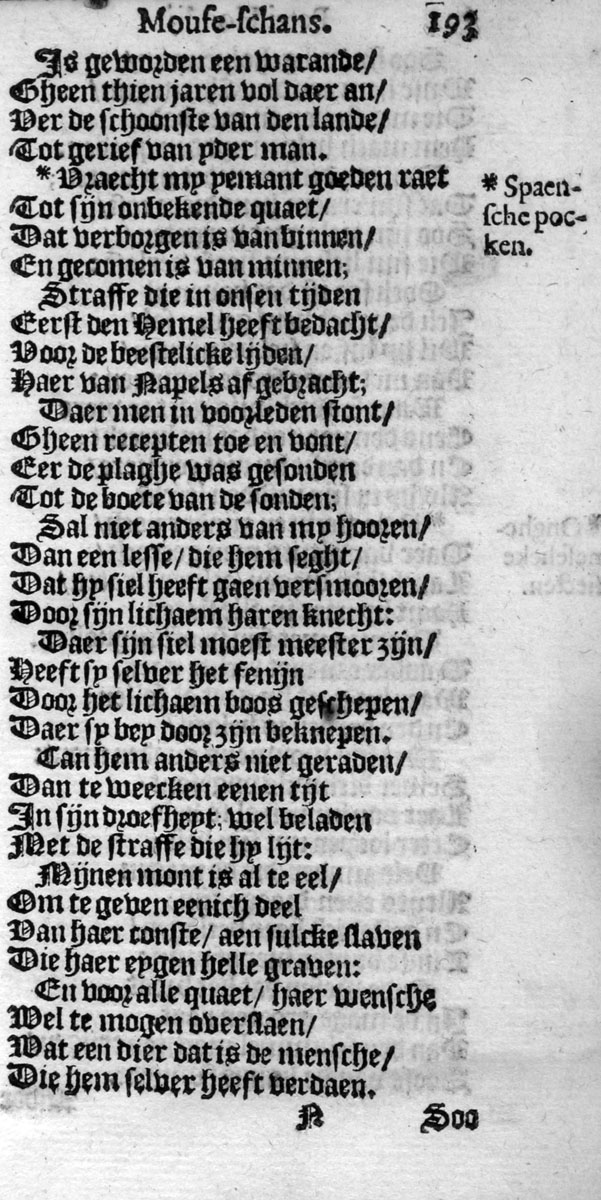 Mouse-schans. 193
Is geworden een warande/
Gheen thien jaren vol daer an/
Ver de schoonste van den lande/
Tot gerief van yder man.
* Vraecht my yemant goeden raet
Tot sijn onbekende quaet/
Dat verborgen is van binnen/
En gecomen is van minnen;
Straffe die in onsen tijden
Eerst den Hemel heeft bedacht/
Voor de beestelicke lijden/
Haer van Napels af gebracht;
Daer men in voorleden stont/
Gheen recepten toe en vont/
Eer de plaghe was gesonden
Tot de boete van de sonden;
Sal niet anders van my hooren/
Dan een lesse/ die hem seght/
Dat hy siel heeft gaen versmooren/
Door sijn lichaem haren knecht:
Daer sijn siel moest meester zijn/
Heeft sy selver het fenijn
Door het lichaem boos geschepen/
Daer sy bey door zijn beknepen.
Can hem anders niet geraden/
Dan te weecken eenen tijt
In sijn droefheyt; wel beladen
Met de straffe die hy lijt:
Mijnen mont is al te eel/
Om te geven eenich deel
Van haer conste/ aen sulcke slaven
Die haer eygen helle graven:
En voor alle quaet/ haer wensche
Wel te mogen overslaen/
Wat een dier dat is de mensche/
Die hem selver heeft verdaen.
N Soo
* Spaen-
sche poc-
ken.